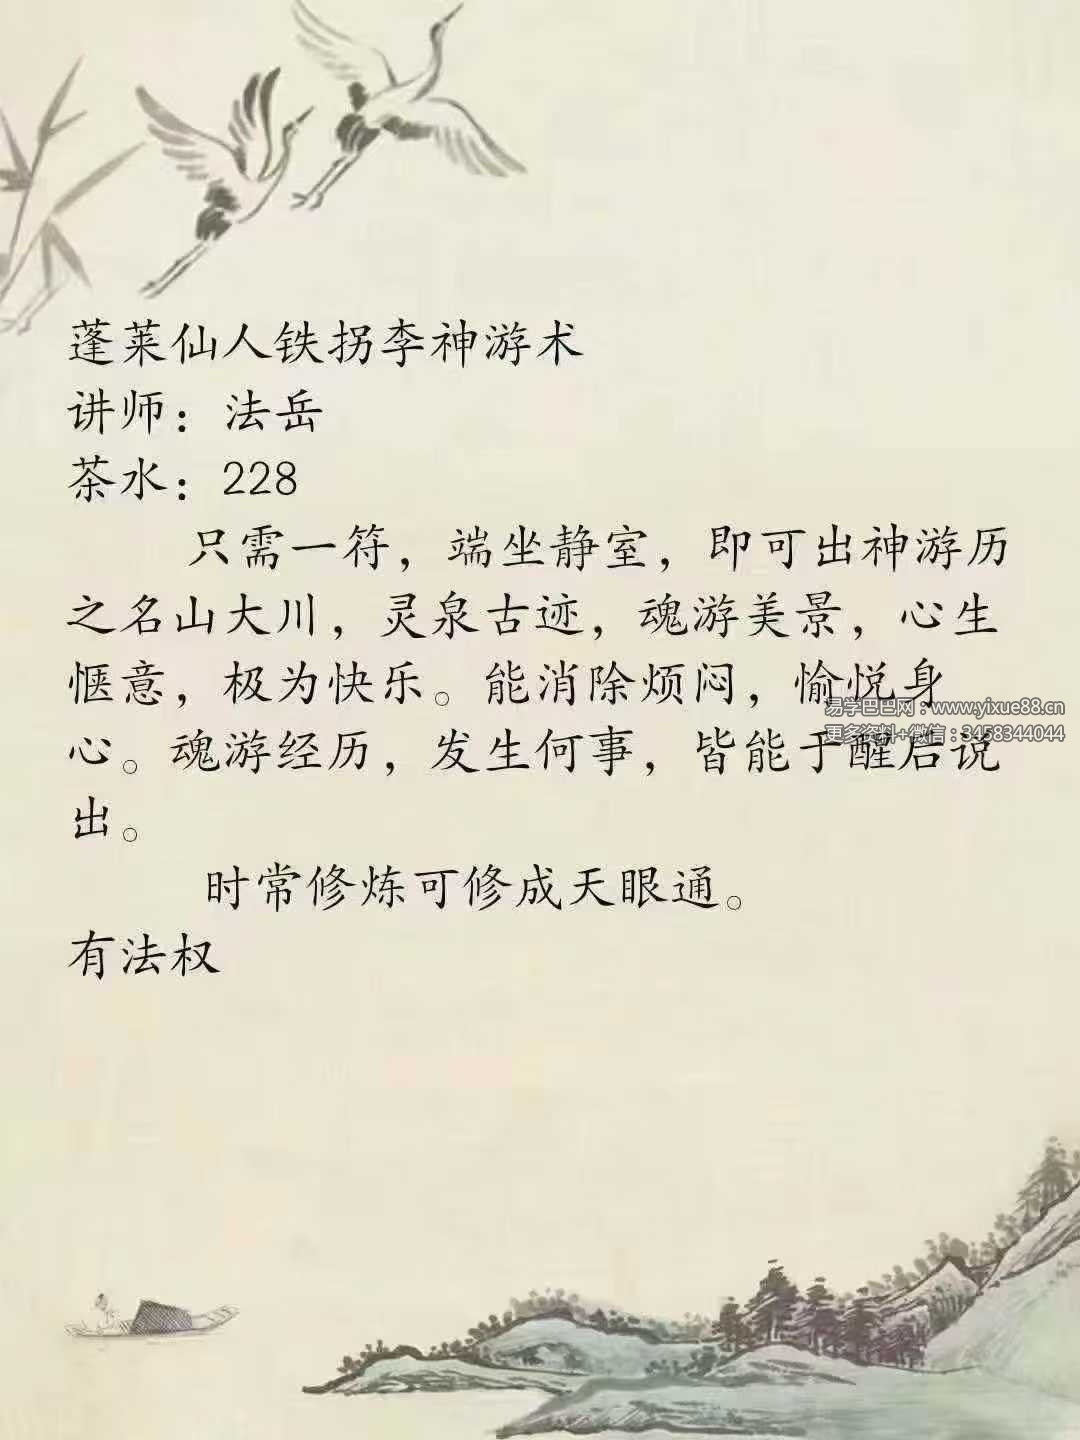 蓬莱仙人铁拐李神游术
讲师：法岳
茶水：228
只需一符，端坐静室，即可出神游历
之名山大川，灵泉古迹，魂游美景，心生
惬意，极为快乐。能消除烦闷，愉悦身
易学巴巴网：www.yixue88.cn
更多资料+微信：3458344044
心。魂游经历，发生何事，皆能于醒后说
出。
时常修炼可修成天眼通。
有法权